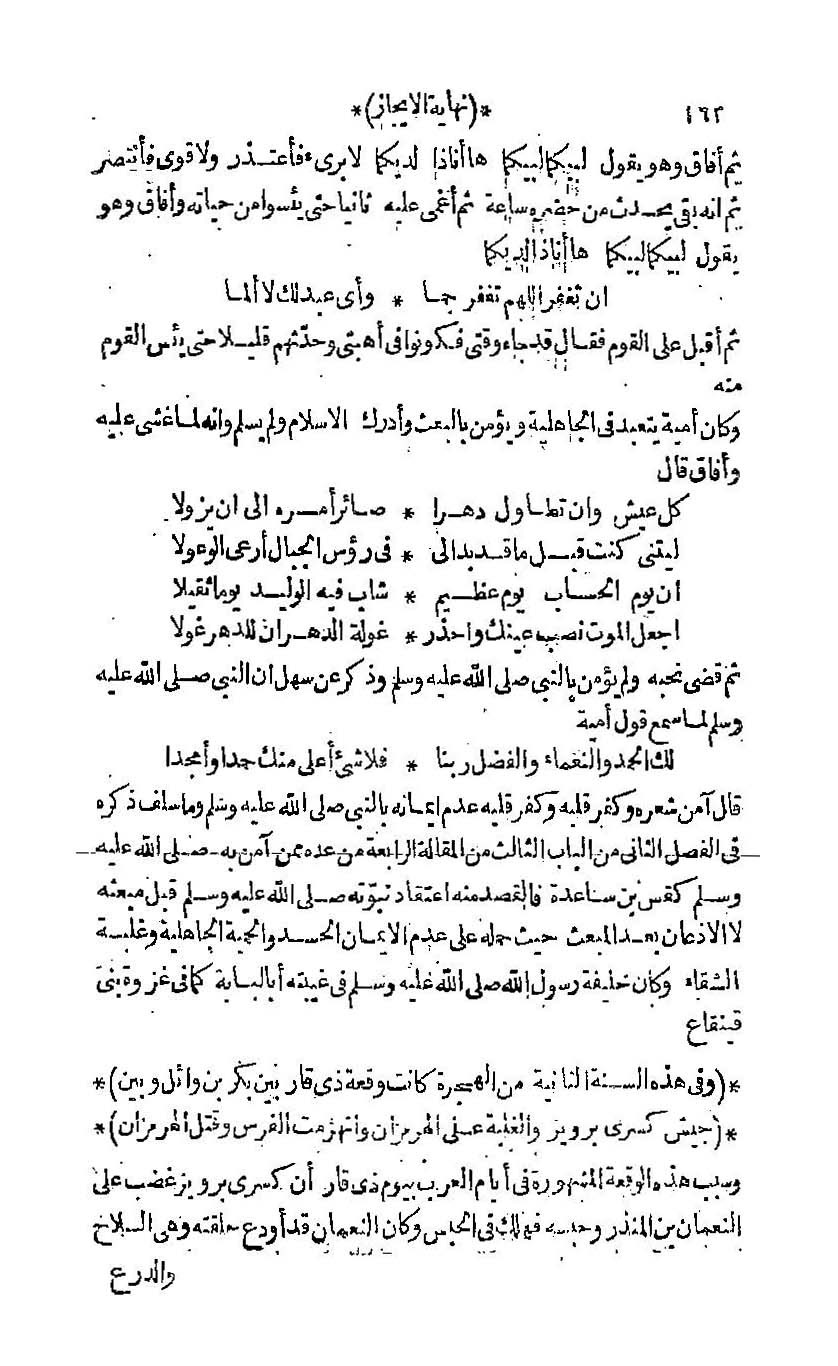 ١٦٢
*(نهاية الايجاز)*
ثم أفاق وهو يقول لبيكما لبيكما ها أنا ذا لديكما لا برىء فأعتــذر ولا قوى فأنتصر
ثم انه بقى يحــدث من حضره ساعة ثم أغمى عليه ثانيا حتى يئسوا من حياته وأفاق وهو
يقول لبيكما لبيكما ها أنا ذا لديكما
ان تغفر اللهم تغفر جما * وأى عبد لك لا ألما
ثم أقبل على القوم فقــال قد جاء وقتى فكونوا فى أهبتى وحدّثهم قليــلا حتى يئس القوم
منه
وكان أمية يتعبد فى الجاهلية ويؤمن بالبعث وأدرك الاسلام ولم يسلم وانه لمــا غشى عليه
وأفاق قال
كل عيش وان تطــاول دهــرا * صــائر أمــره الى ان يزولا
ليتنى كنت قبــل ما قــد بدالى * فى رؤس الجبال أرعى الوعولا
ان يوم الحســاب يوم عظــيم * شاب فيه الوليــد يوما ثقيلا
اجعل الموت نصب عينك واحذر * غولة الدهر ان للدهر غولا
ثم قضى نحبه ولم يؤمن بالنبى صلى الله عليه وسلم وذكر عن سهل ان النبى صــلى الله عليه
وسلم لمــا سمع قول أمية
لك الحمد والنعماء والفضل ربنا * فلا شئ أعلى منك حمدا وأمجدا
قال آمن شعره وكفر قلبه وكفر قلبه عدم ايمــانه بالنبى صلى الله عليه وسلم وما سلف ذكره
فى الفصل الثانى من الباب الثالث من المقالة الرابعة من عده ممن آمن به صــلى الله عليه
وســلم كقس بن ســاعدة فالقصد منه اعتقاد نبوّته صــلى الله عليه وســلم قبل مبعثه
لا الاذعان بعــد المبعث حيث حمله على عدم الايمــان الحســد والحمية الجاهلية وغلبــة
الشقاء وكان خليفة رسول الله صلى الله عليه وســلم فى غيبته أبا لبــابة كما فى غزوة بنى
قينقاع
*(وفى هذه الســنة الثانية من الهجرة كانت وقعة ذى قار بين بكر بن وائل وبين)*
*(جيش كسرى برويز والغلبة عــلى الهرمزان وانهزمت الفرس وقتل الهرمزان)*
وسبب هذه الوقعة المشهورة فى أيام العرب بيوم ذى قار أن كسرى برويز غضب على
النعمان بن المنذر وحبسه فهلك فى الحبس وكان النعمان قد أودع حلقته وهى الســلاح
والدرع